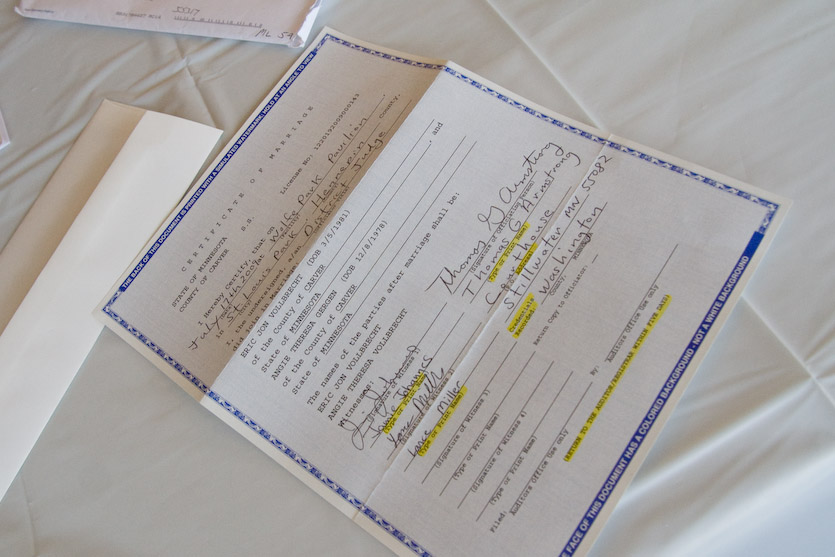 THE BACK OF THIS DOCUMENT IS PRINTED WITH A SIMULATED WATERMARK; HOLD AT AN ANGLE TO VIEW
CERTIFICATE OF MARRIAGE
STATE OF MINNESOTA
COUNTY OF CARVER S.S.
I Hereby certify, that on
July 17th 2009 at Wolfe Park Pavilion
in St. Louis Park, Hennepin County,
I, the undersigned, a/an District Judge
did join in Marriage
ERIC JON VOLLBRECHT (DOB 3/5/1981)
of the County of CARVER
State of MINNESOTA , and
ANGIE THERESA GERGEN (DOB 12/8/1978)
of the County of CARVER
State of MINNESOTA
The names of the parties after marriage shall be:
ERIC JON VOLLBRECHT
ANGIE THERESA VOLLBRECHT
Witnesses:
(Signature of Witness 1)
Johannes
(Type or Print Name)
(Signature of Witness 2)
Lance Miller
(Type or Print Name)
(Signature of Witness 3)
(Type or Print Name)
(Signature of Witness 4)
(Type or Print Name)
Thomas G Armstrong
Thomas G Armstrong
(Type or Print Name)
Courthouse
Stillwater MN 55082
Credentials
Recorded: Washington
County,
Return Copy to Officiator:
Filed:
Auditors Office Use Only
By:
Auditors Office Use Only
(RETURN TO THE AUDITOR/REGISTRAR WITHIN FIVE DAYS)
FACE OF THIS DOCUMENT HAS A COLORED BACKGROUND - NOT A WHITE BACKGROUND